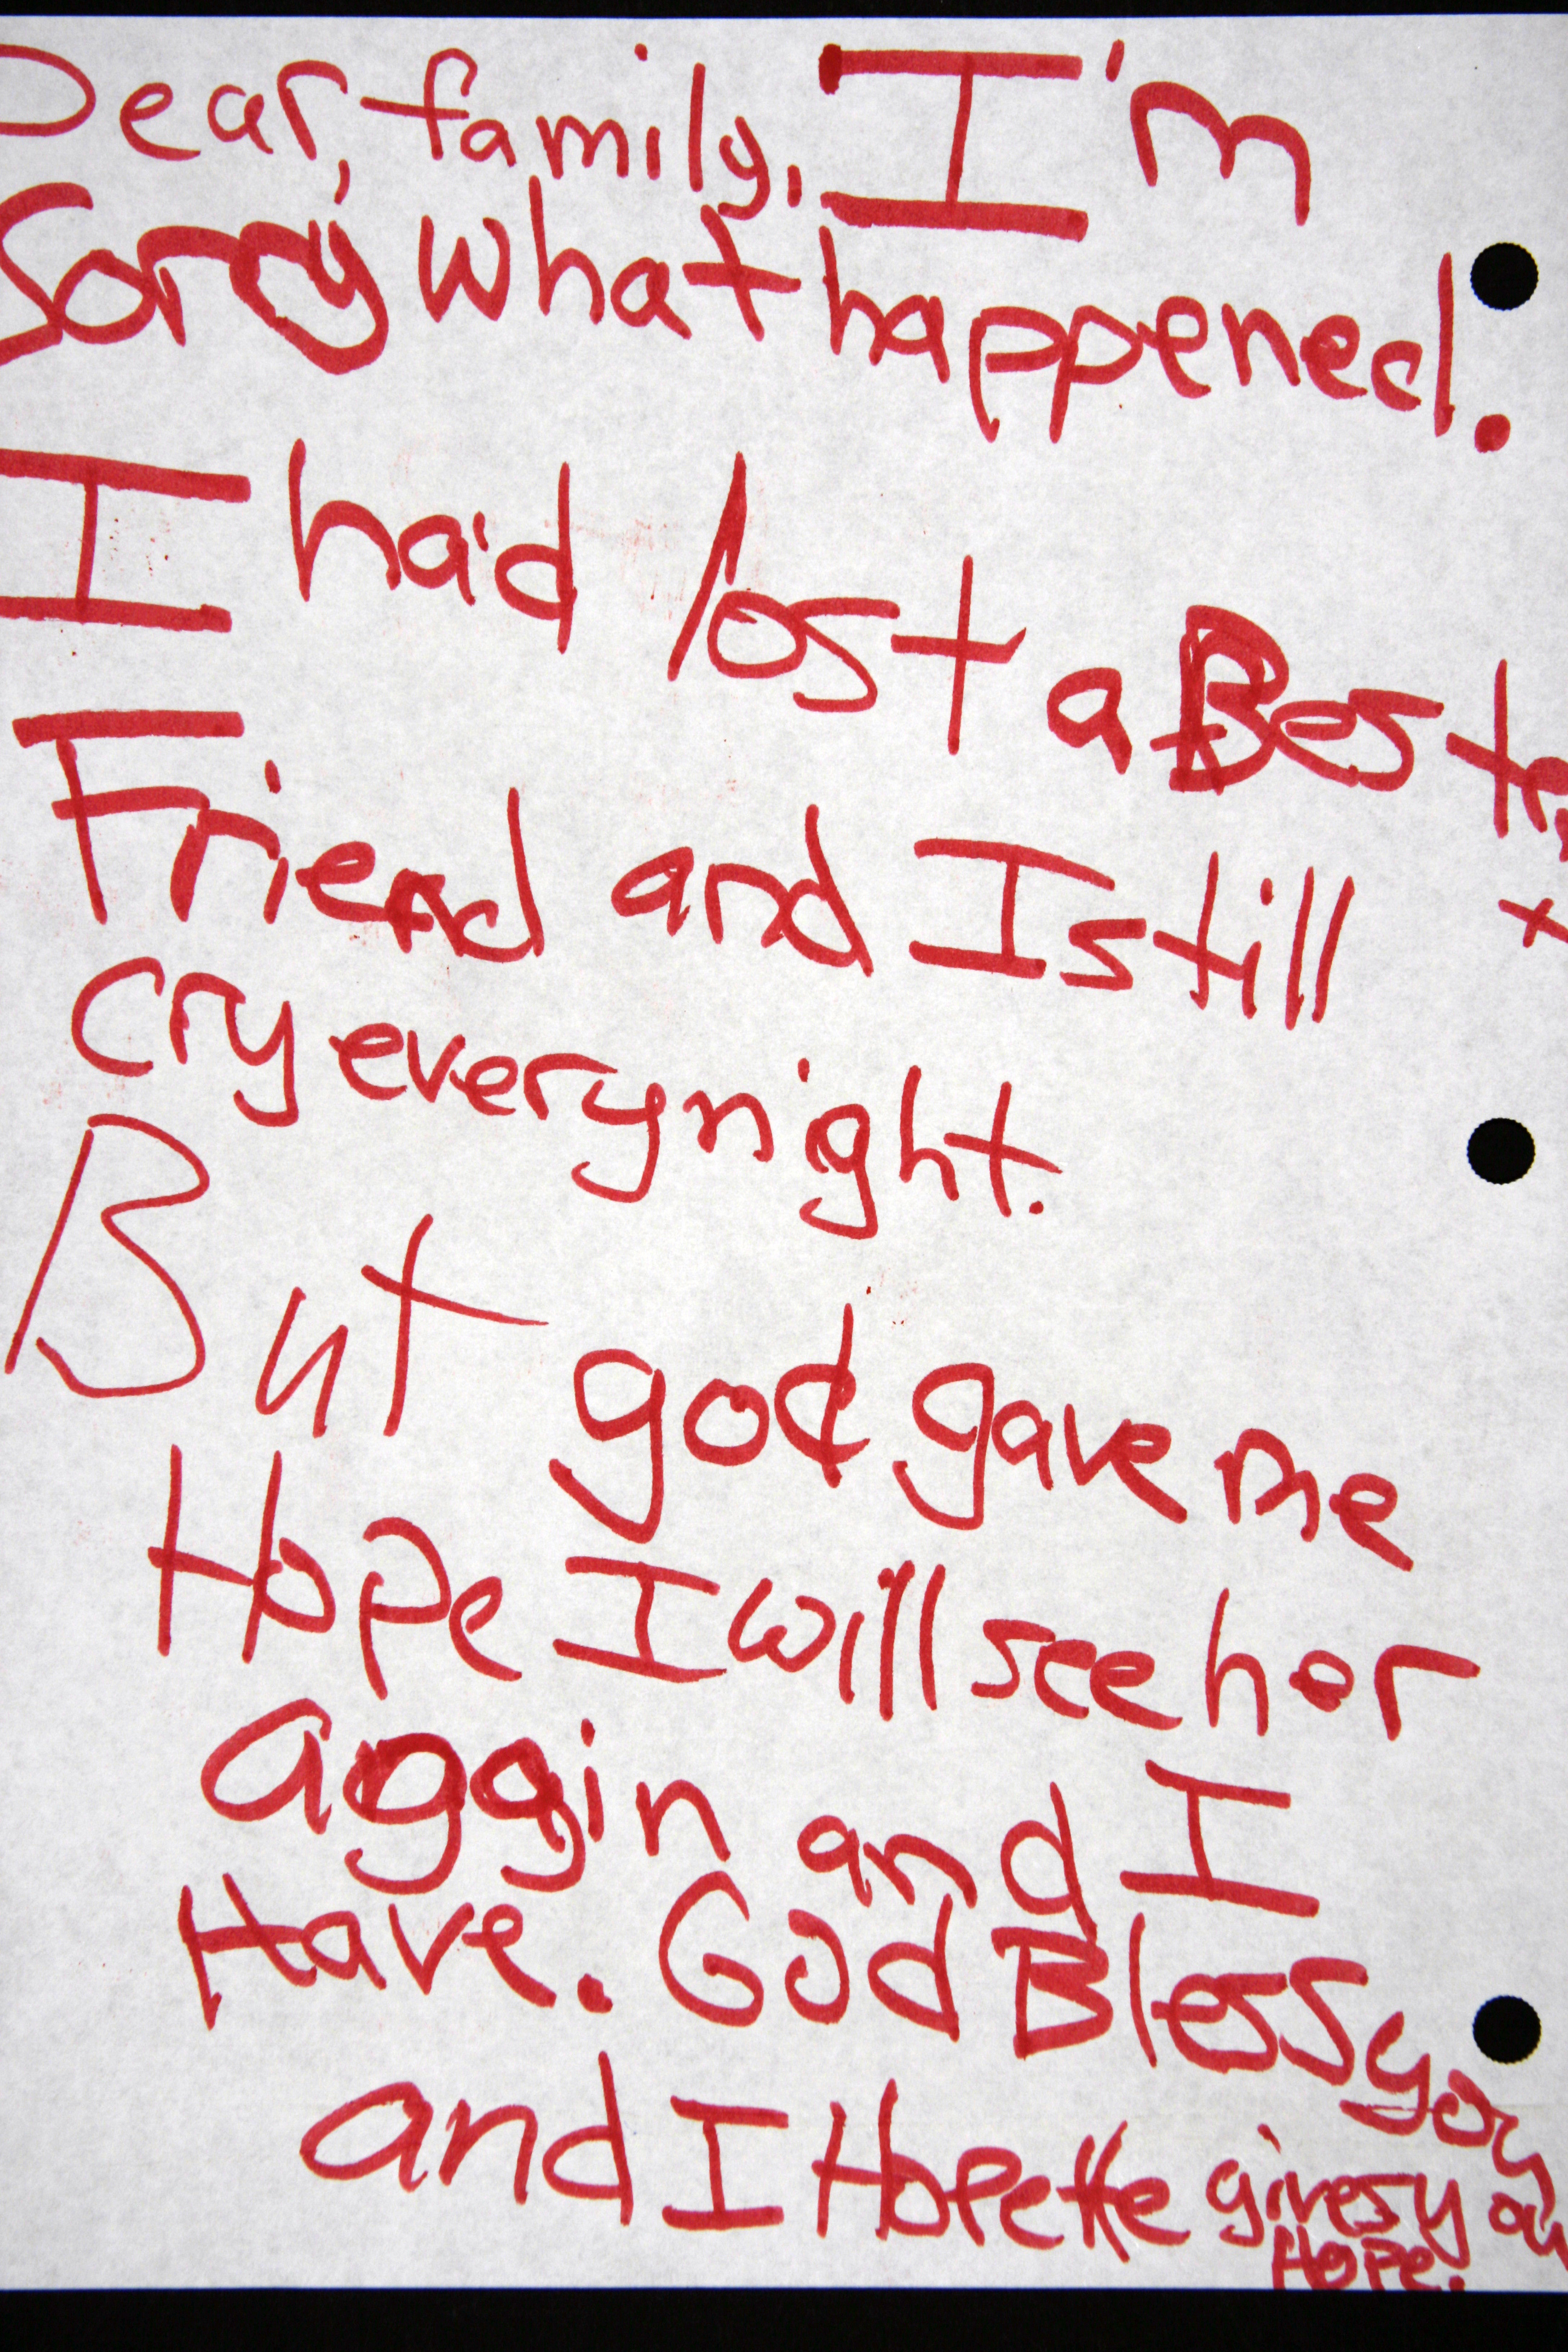 Dear, family, I'm
Sorry what happened.
I had lost a Best
Friend and I still
cry every night.
But god gave me
Hope I will see her
again and I
Have. God Bless you
and I Hope He gives you
Hope.